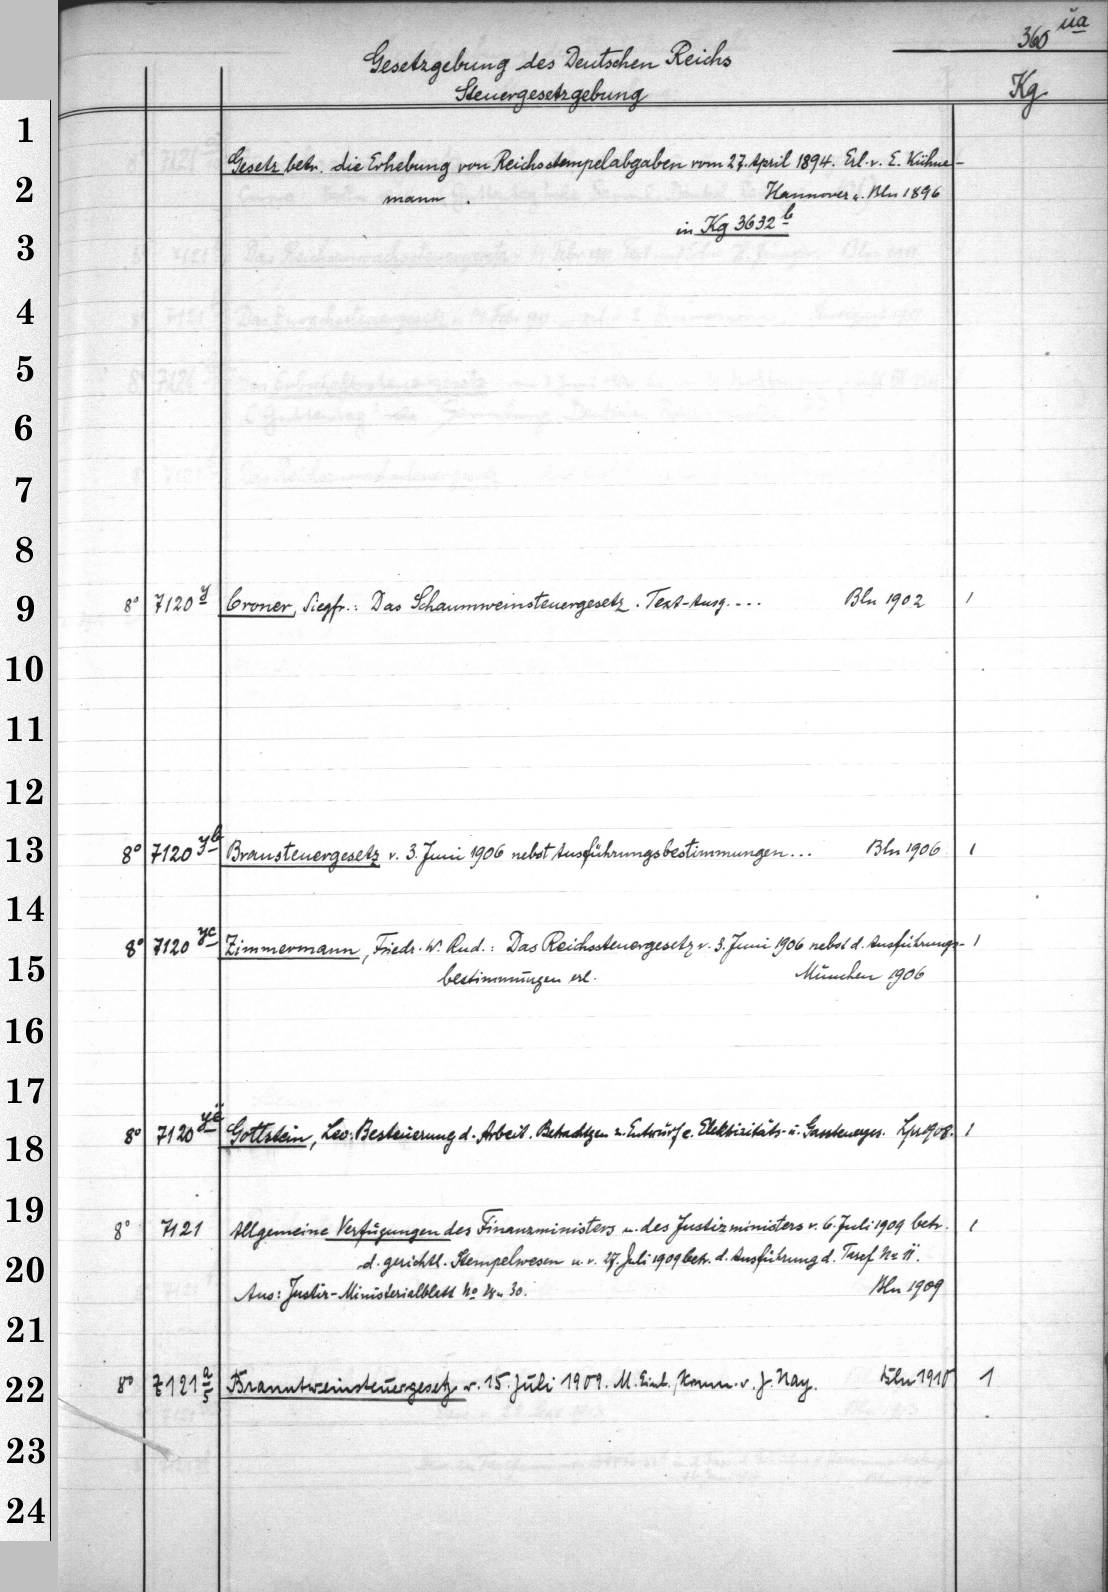 360 üa
Gesetzgebung des Deutschen Reichs
Steuergesetzgebung
Kg
1
Gesetz betr. die Erhebung von Reichsstempelabgaben vom 27. April 1894. Erl. v. E. Kühne-
2
mann. Hannover u. Bln 1896
in Kg 3632 b
3
4
5
6
7
8
9
8° 7120 y Croner, Siegfr.: Das Schaumweinsteuergesetz. Text-Ausg. ... Bln 1902 1
10
11
12
13
8° 7120 yb Brausteuergesetz v. 3. Juni 1906 nebst Ausführungsbestimmungen... Bln 1906 1
14
8° 7120 yc Zimmermann, Friedr. W. Rud.: Das Reichssteuergesetz v. 3. Juni 1906 nebst d. Ausführungs- 1
15
bestimmungen erl. München 1906
16
17
18
8° 7120 yë Gottstein, Leo: Besteuerung d. Arbeit. Betrachtgen z. Entwurf e. Elektrizitäts- u. Gassteuerges. Lpz 1908. 1
19
8° 7121 Allgemeine Verfügungen des Finanzministers u. des Justizministers v. 6. Juli 1909 betr. 1
20
d. gerichtl. Stempelwesen u. v. 27. Juli 1909 betr. d. Ausführung d.
Aus: Justiz-Ministerialblatt No u. 30. Bln 1909
21
22
8° 7121 a/5 Branntweinsteuergesetz v. 15. Juli 1909. M. Einl., Komm. v. J. Nay. Bln 1910 1
23
24